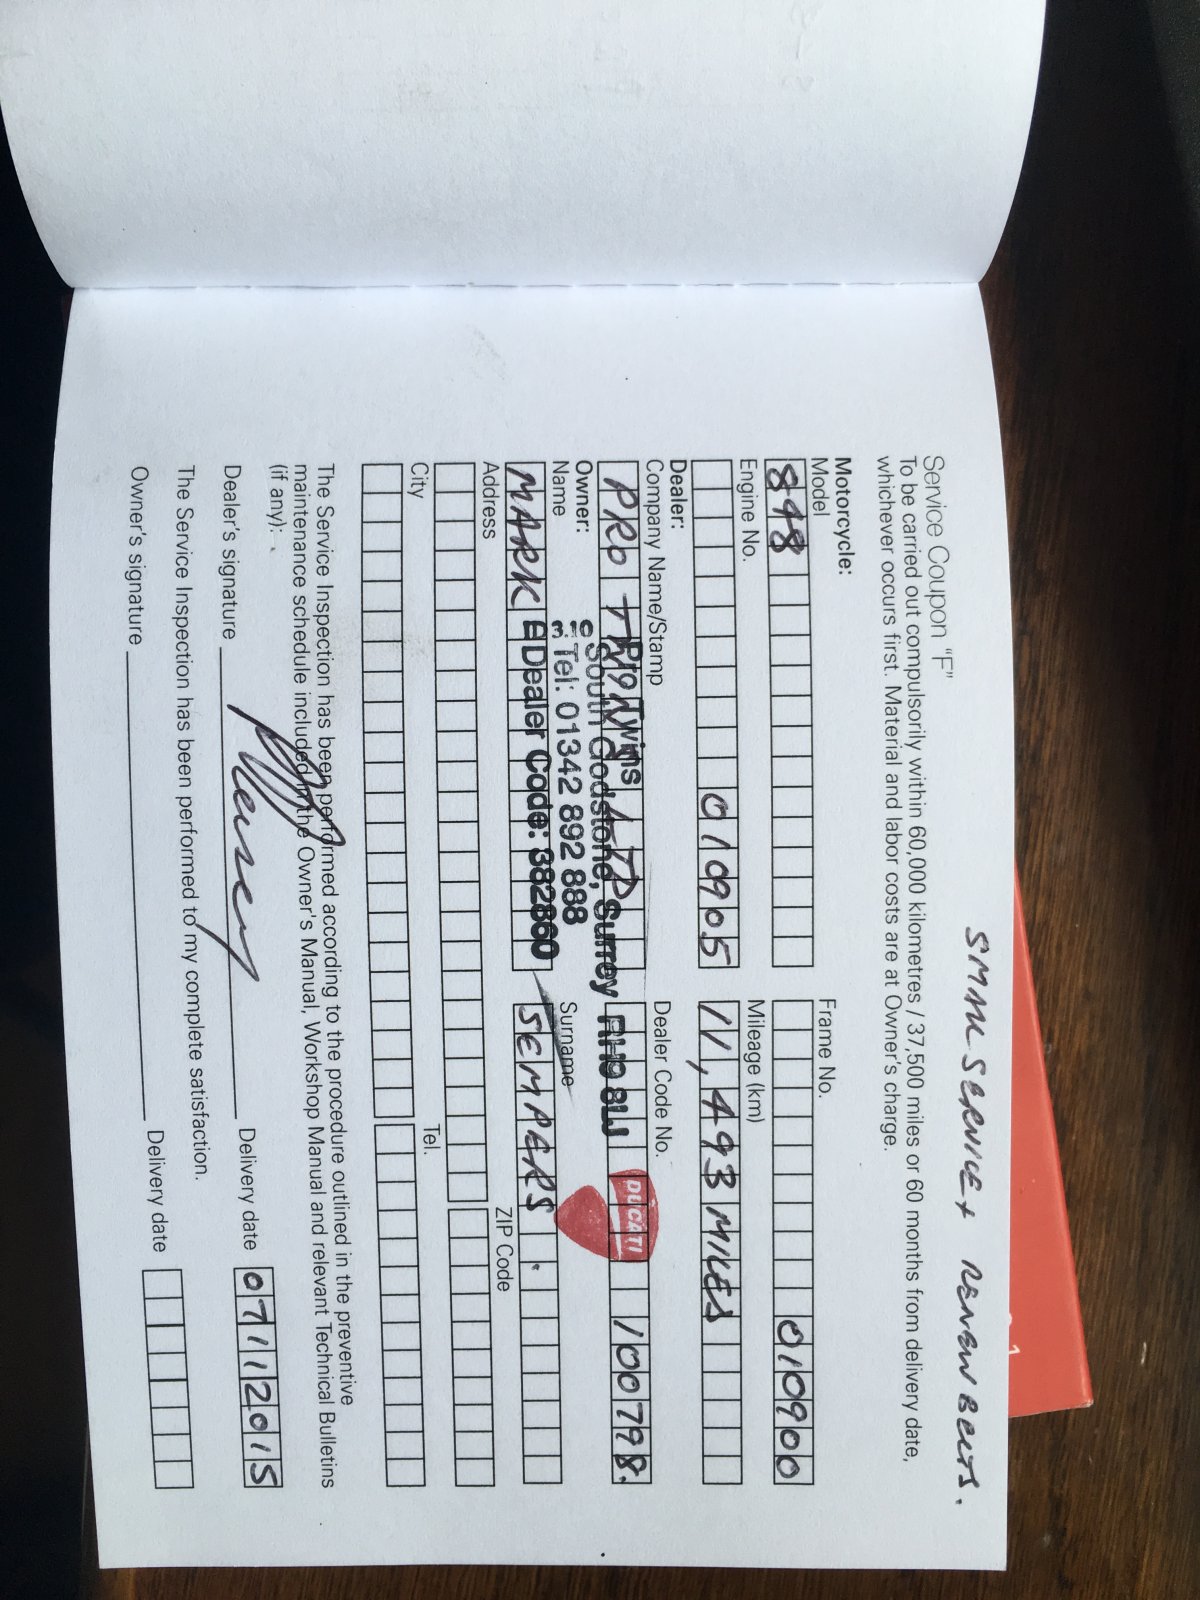 SMALL SERVICE + RENEW BELTS.
Service Coupon "F"
To be carried out compulsorily within 60,000 kilometres / 37,500 miles or 60 months from delivery date,
whichever occurs first. Material and labor costs are at Owner's charge.
Motorcycle:
Model Frame No.
848 010900
Engine No. Mileage (km)
010905 11,493 MILES
Dealer:
Company Name/Stamp Dealer Code No.
PRO TWINS LTD 100798.
Pro Twins
DUCATI
South Godstone, Surrey RH9 8LJ
Tel: 01342 892 888
Dealer Code: 382860
Owner:
Name Surname
MARK SEMPERS.
Address ZIP Code
City Tel.
The Service Inspection has been performed according to the procedure outlined in the preventive
maintenance schedule included in the Owner's Manual, Workshop Manual and relevant Technical Bulletins
(if any):
Dealer's signature Delivery date 07112015
The Service Inspection has been performed to my complete satisfaction.
Owner's signature Delivery date